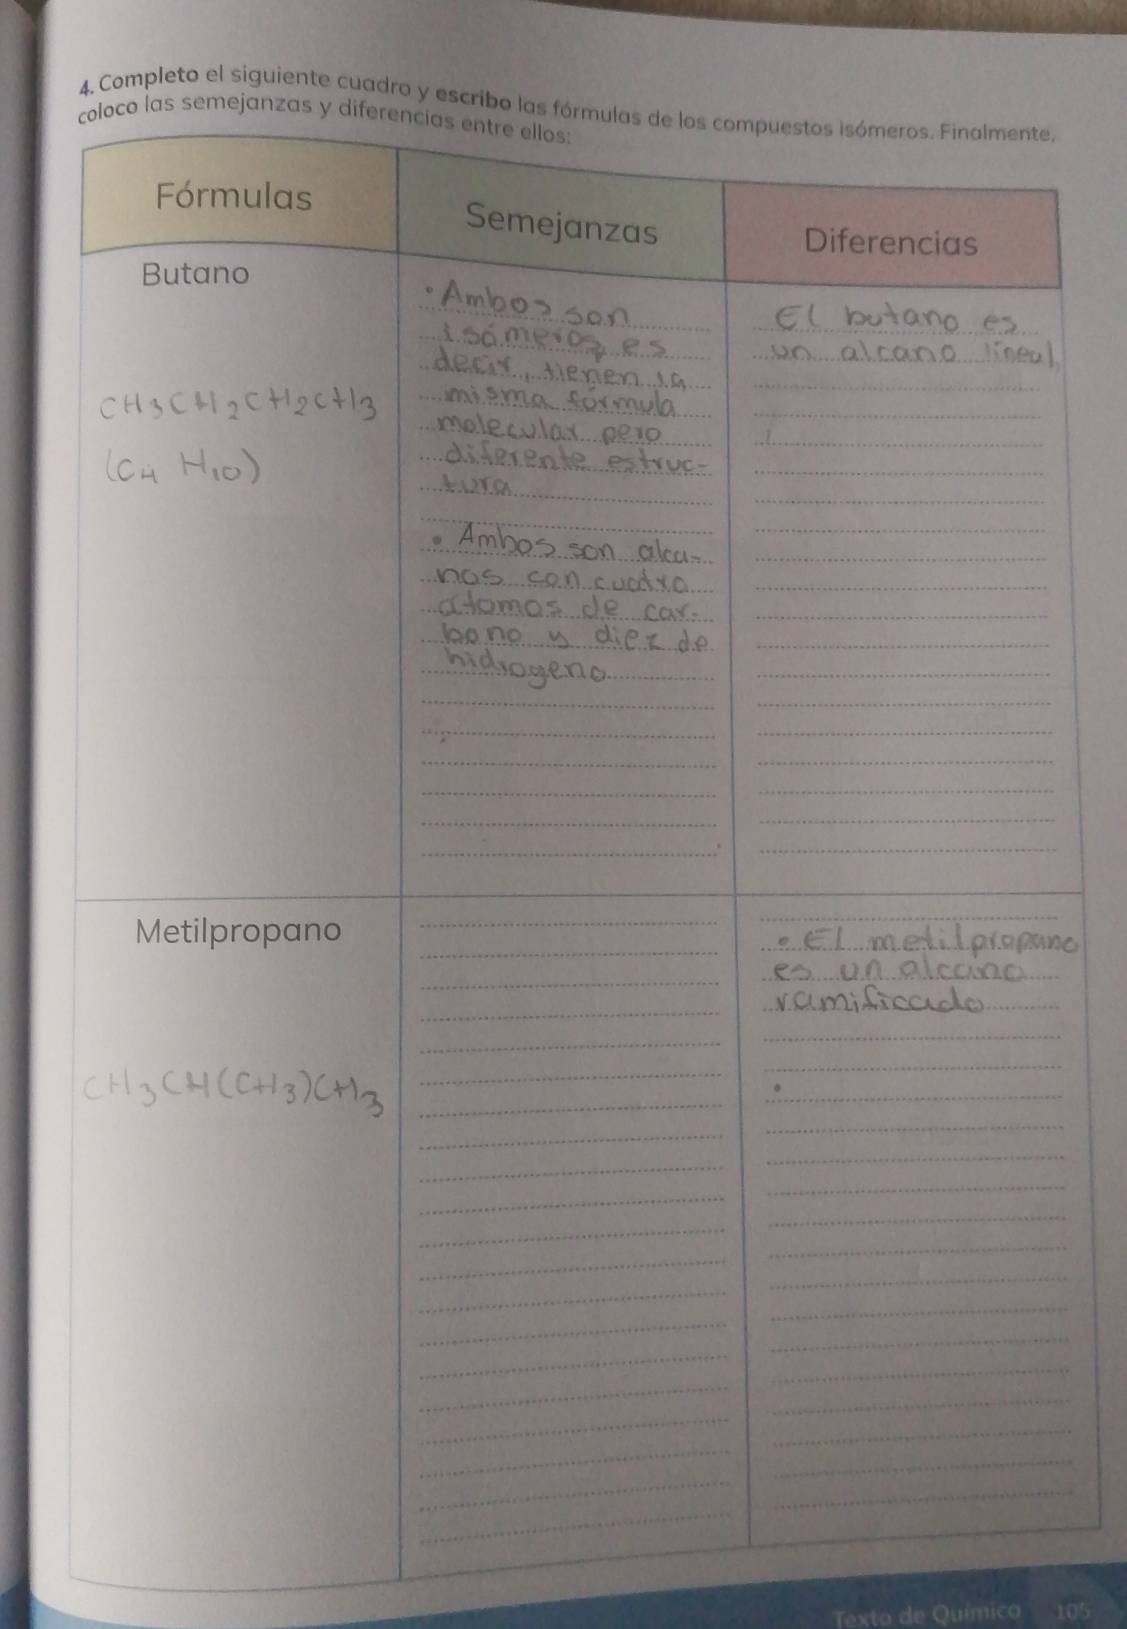 4. Completo el siguiente cuadro y escribo las fórmulas de los compuestos isómeros. Finalmente,
coloco las semejanzas y diferencias entre ellos:
Fórmulas
Semejanzas
Diferencias
Butano
CH3CH2CH2CH3
(C4 H10)
• Ambos son
isómeros, es
decir, tienen la
misma fórmula
molecular pero
diferente estruc-
tura
• Ambos son alca-
nos con cuatro
atomos de car-
bono y diez de
hidrogeno
El butano es
un alcano lineal
Metilpropano
CH3CH(CH3)CH3
• El metilpropano
es un alcano
ramificado
•
Texto de Químico 105